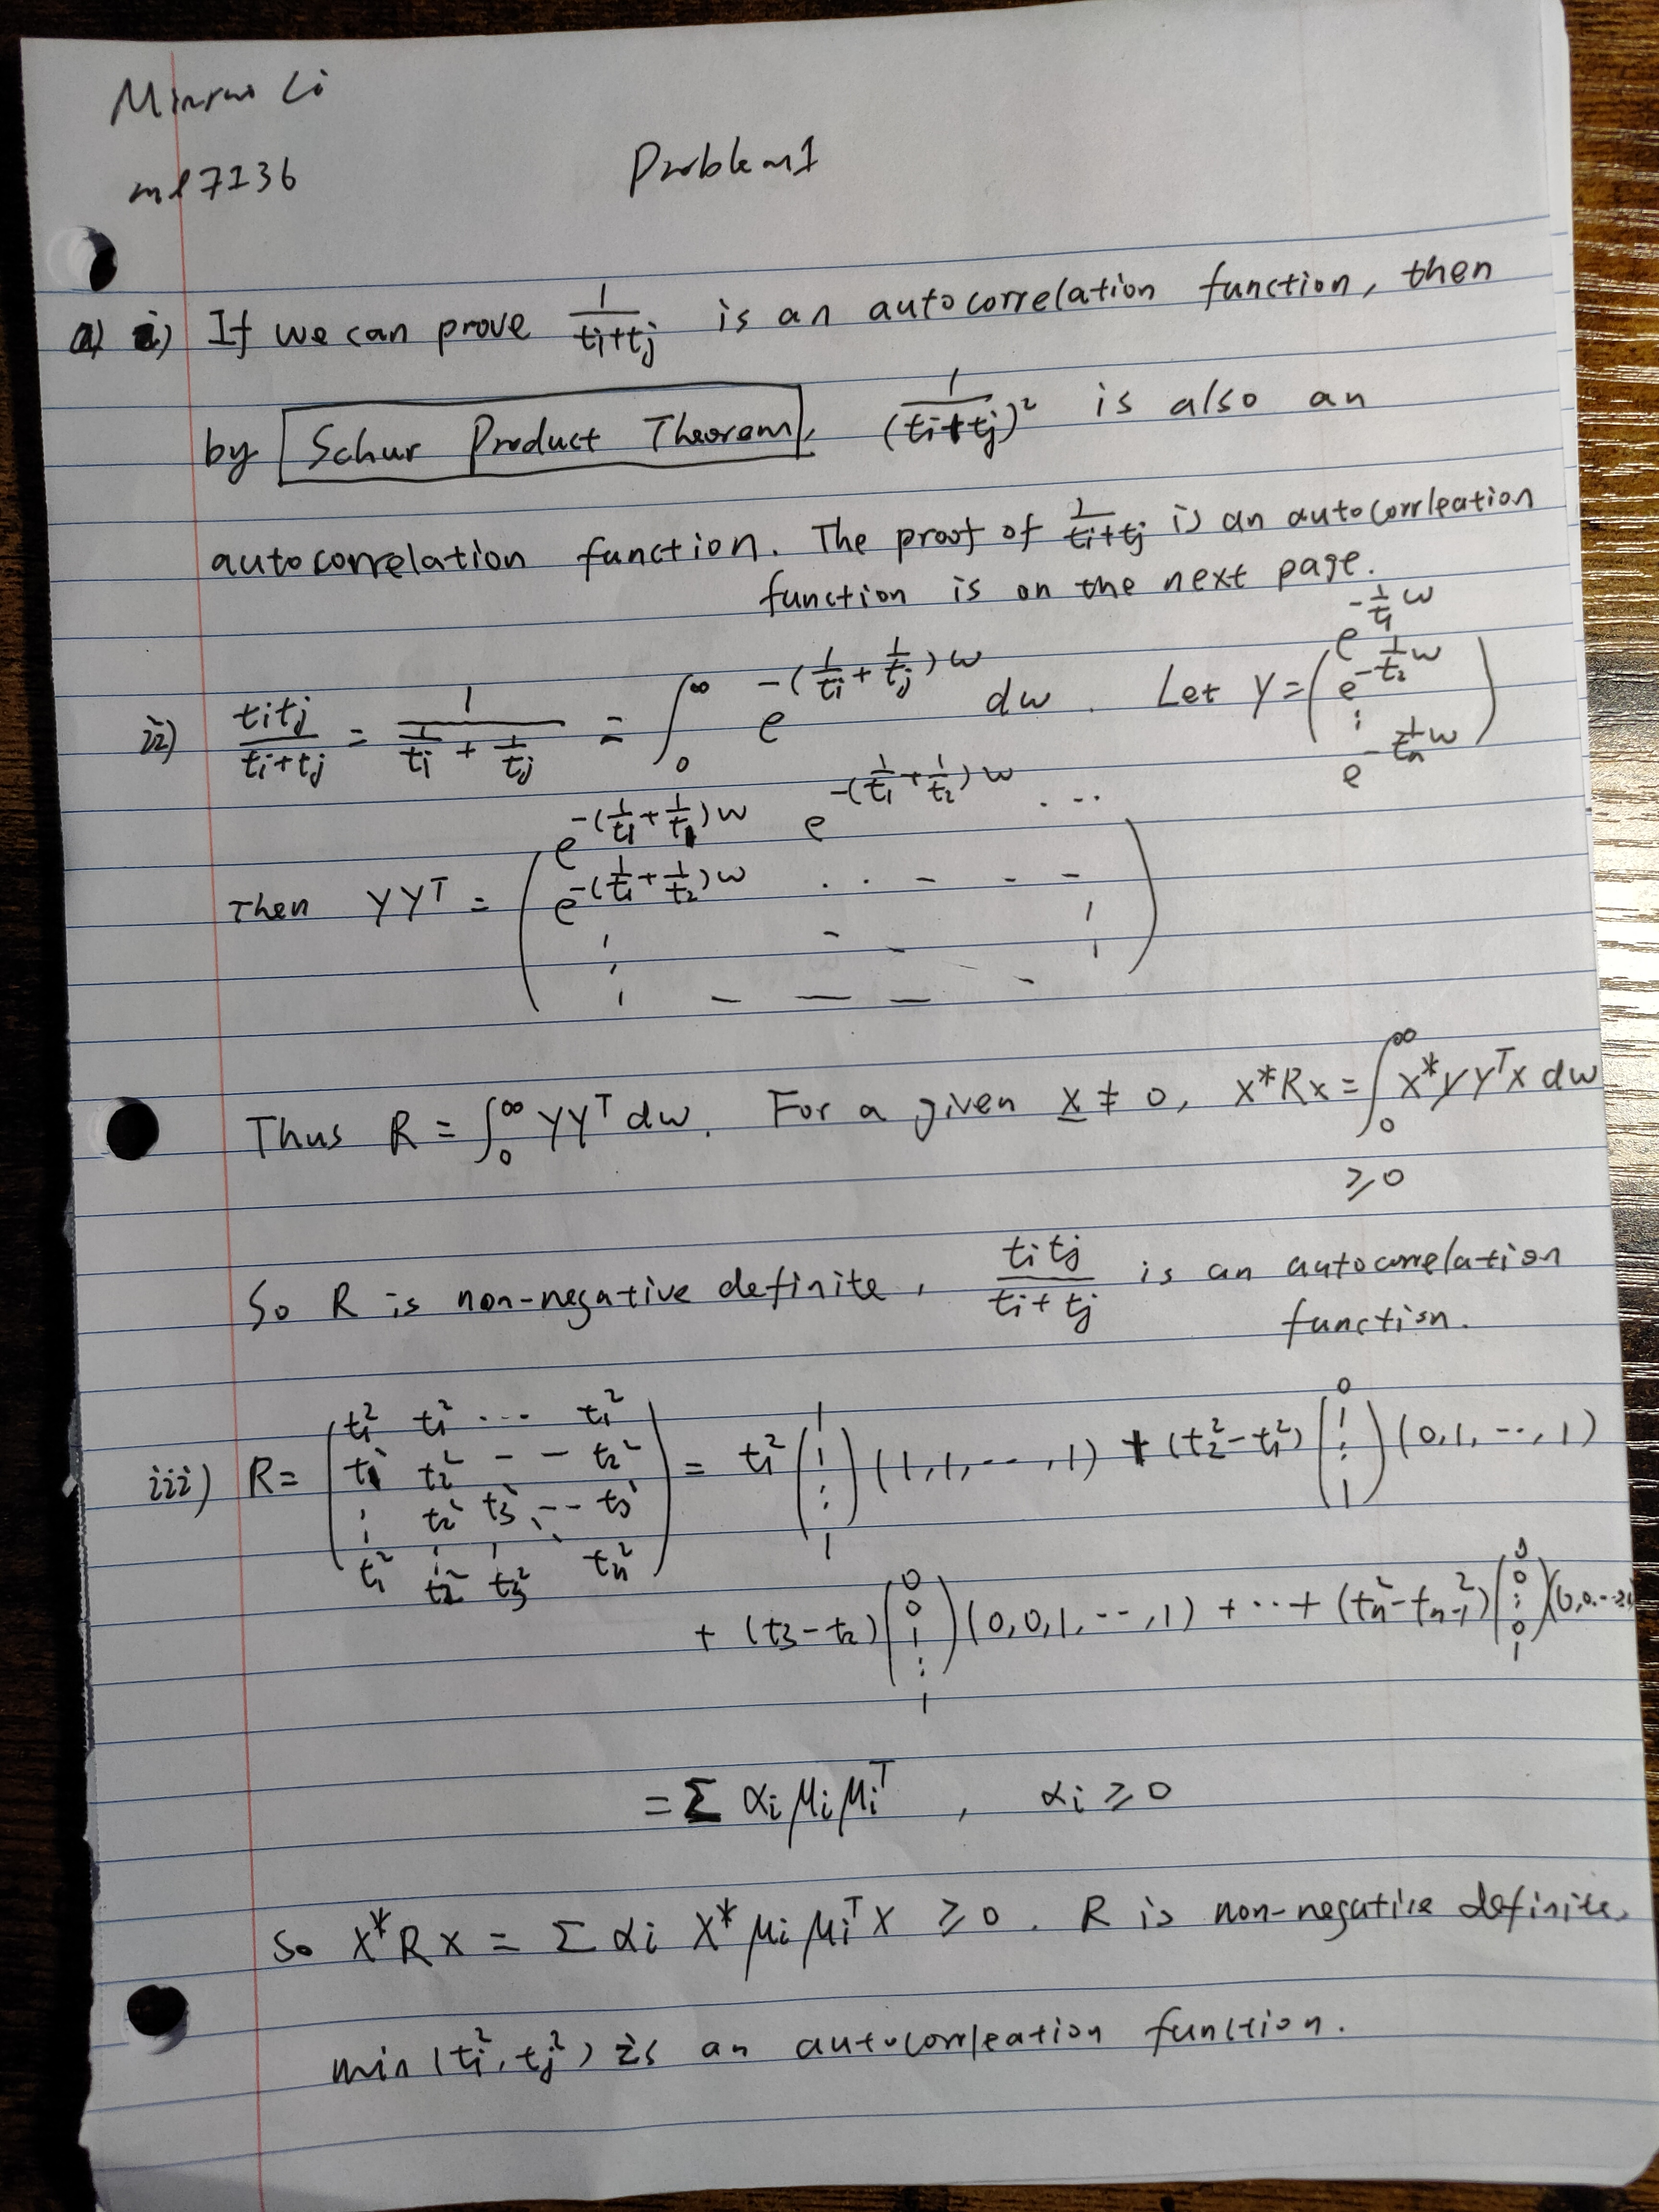 ml7136
Problem 1
a) i) If we can prove 1/(ti+tj) is an autocorrelation function, then
by Schur Product Theorem, 1/(ti+tj)² is also an
autocorrelation function. The proof of 1/(ti+tj) is an autocorrleation
function is on the next page.
ii) titj/(ti+tj) = 1/(1/ti + 1/tj) = ∫₀^∞ e^(-(1/ti + 1/tj)w) dw. Let Y = (e^(-1/t1 w), e^(-1/t2 w), ⋮, e^(-1/tn w))
Then YYᵀ = (e^(-(1/t1 + 1/t1)w) e^(-(1/t1 + 1/t2)w) ...
e^(-(1/t1 + 1/t2)w) . . - - -
⋮ - - - )
Thus R = ∫₀^∞ YYᵀ dw. For a given x ≠ 0, x*Rx = ∫₀^∞ x*YYᵀx dw
≥ 0
So R is non-negative definite, titj/(ti+tj) is an autocorrelation
function.
iii) R = (t1² t1² ... t1²; t1² t2² - - t2²; ⋮ t2² t3² ⋱ -- t3²; t1² t2² t3² tn²) = t1² (1, 1, ⋮, 1) (1, 1, ..., 1) + (t2² - t1²) (0, 1, ⋮, 1) (0, 1, ..., 1)
+ (t3 - t2) (0, 0, 1, ⋮, 1) (0, 0, 1, ..., 1) + ... + (tn² - tn-1²) (0, 0, ⋮, 0, 1) (0, 0, ...
= Σ αi μi μiᵀ, αi ≥ 0
So x*Rx = Σ αi x* μi μiᵀ x ≥ 0. R is non-negative definite,
min(ti², tj²) is an autocorrleation function.